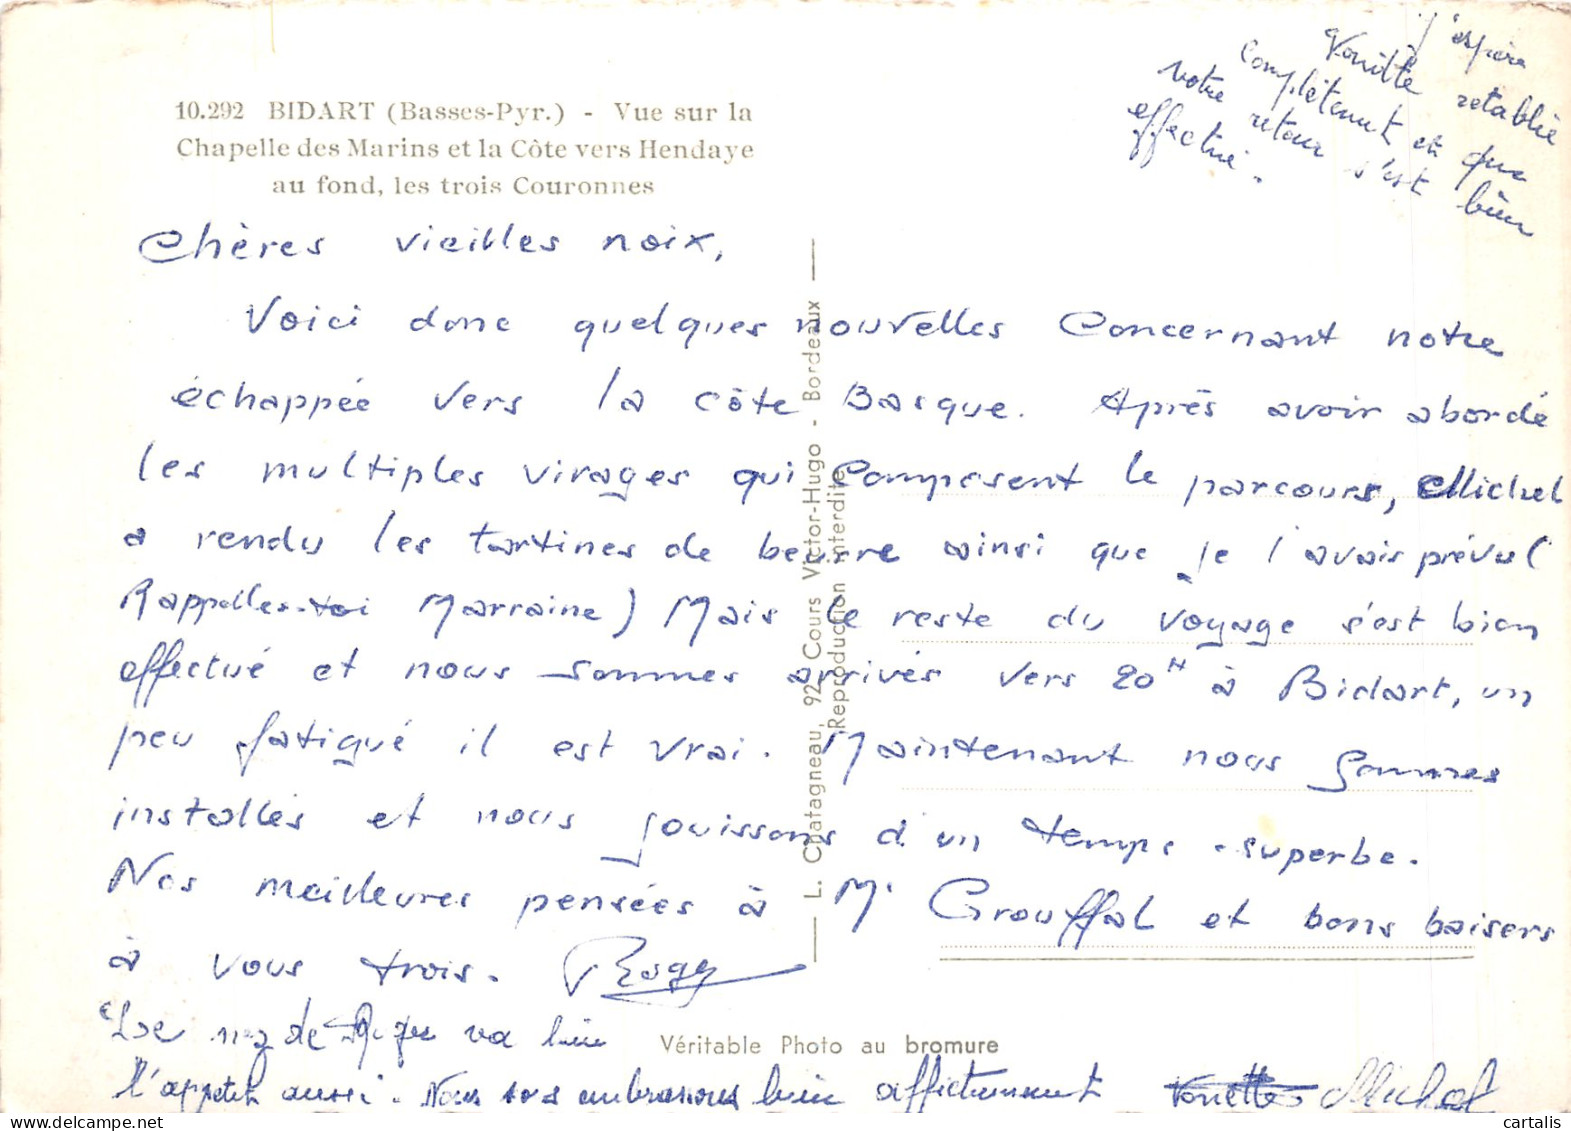 J'espère
Vonitte retablie
complètement et que
votre retour s'est bien
effectué.
10.292 BIDART (Basses-Pyr.) - Vue sur la
Chapelle des Marins et la Côte vers Hendaye
au fond, les trois Couronnes
Chères vieilles noix,
Voici donc quelques nouvelles concernant notre
échappée vers la côte Basque. Après avoir abordé
les multiples virages qui composent le parcours, Michel
a rendu les tartines de beurre ainsi que je l'avais prévu (
Rappelles-toi Marraine) Mais le reste du voyage s'est bien
effectué et nous sommes arrivés vers 20H à Bidart, un
peu fatigué il est vrai. Maintenant nous sommes
installés et nous jouissons d'un temps superbe.
Nos meilleures pensées à Mr Grouffal et bons baisers
à vous trois.
Le nez de va bien
l'appetit aussi. Nous vous embrassons bien affectueusement Michel
L. Chatagneau, 92, Cours Victor-Hugo - Bordeaux
Reproduction interdite
Véritable Photo au bromure
cartalis